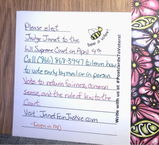 Please elect
Judge Janet to the
WI Supreme Court on April 4th
Call (866) 868-3947 to learn how
to vote early by mail or in person
Vote to return fairness, common
sense, and the rule of law to the
Court.
Visit JanetForJustice.com
Write with us at #PostcardsToVoters!